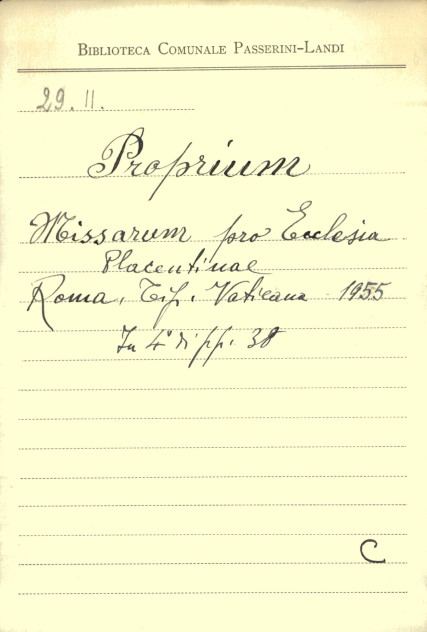 BIBLIOTECA COMUNALE PASSERINI-LANDI
29. II.
Proprium
Missarum pro Ecclesia
Placentinae
Roma. Tip. Vaticana 1955
In 4° di pp. 38
C